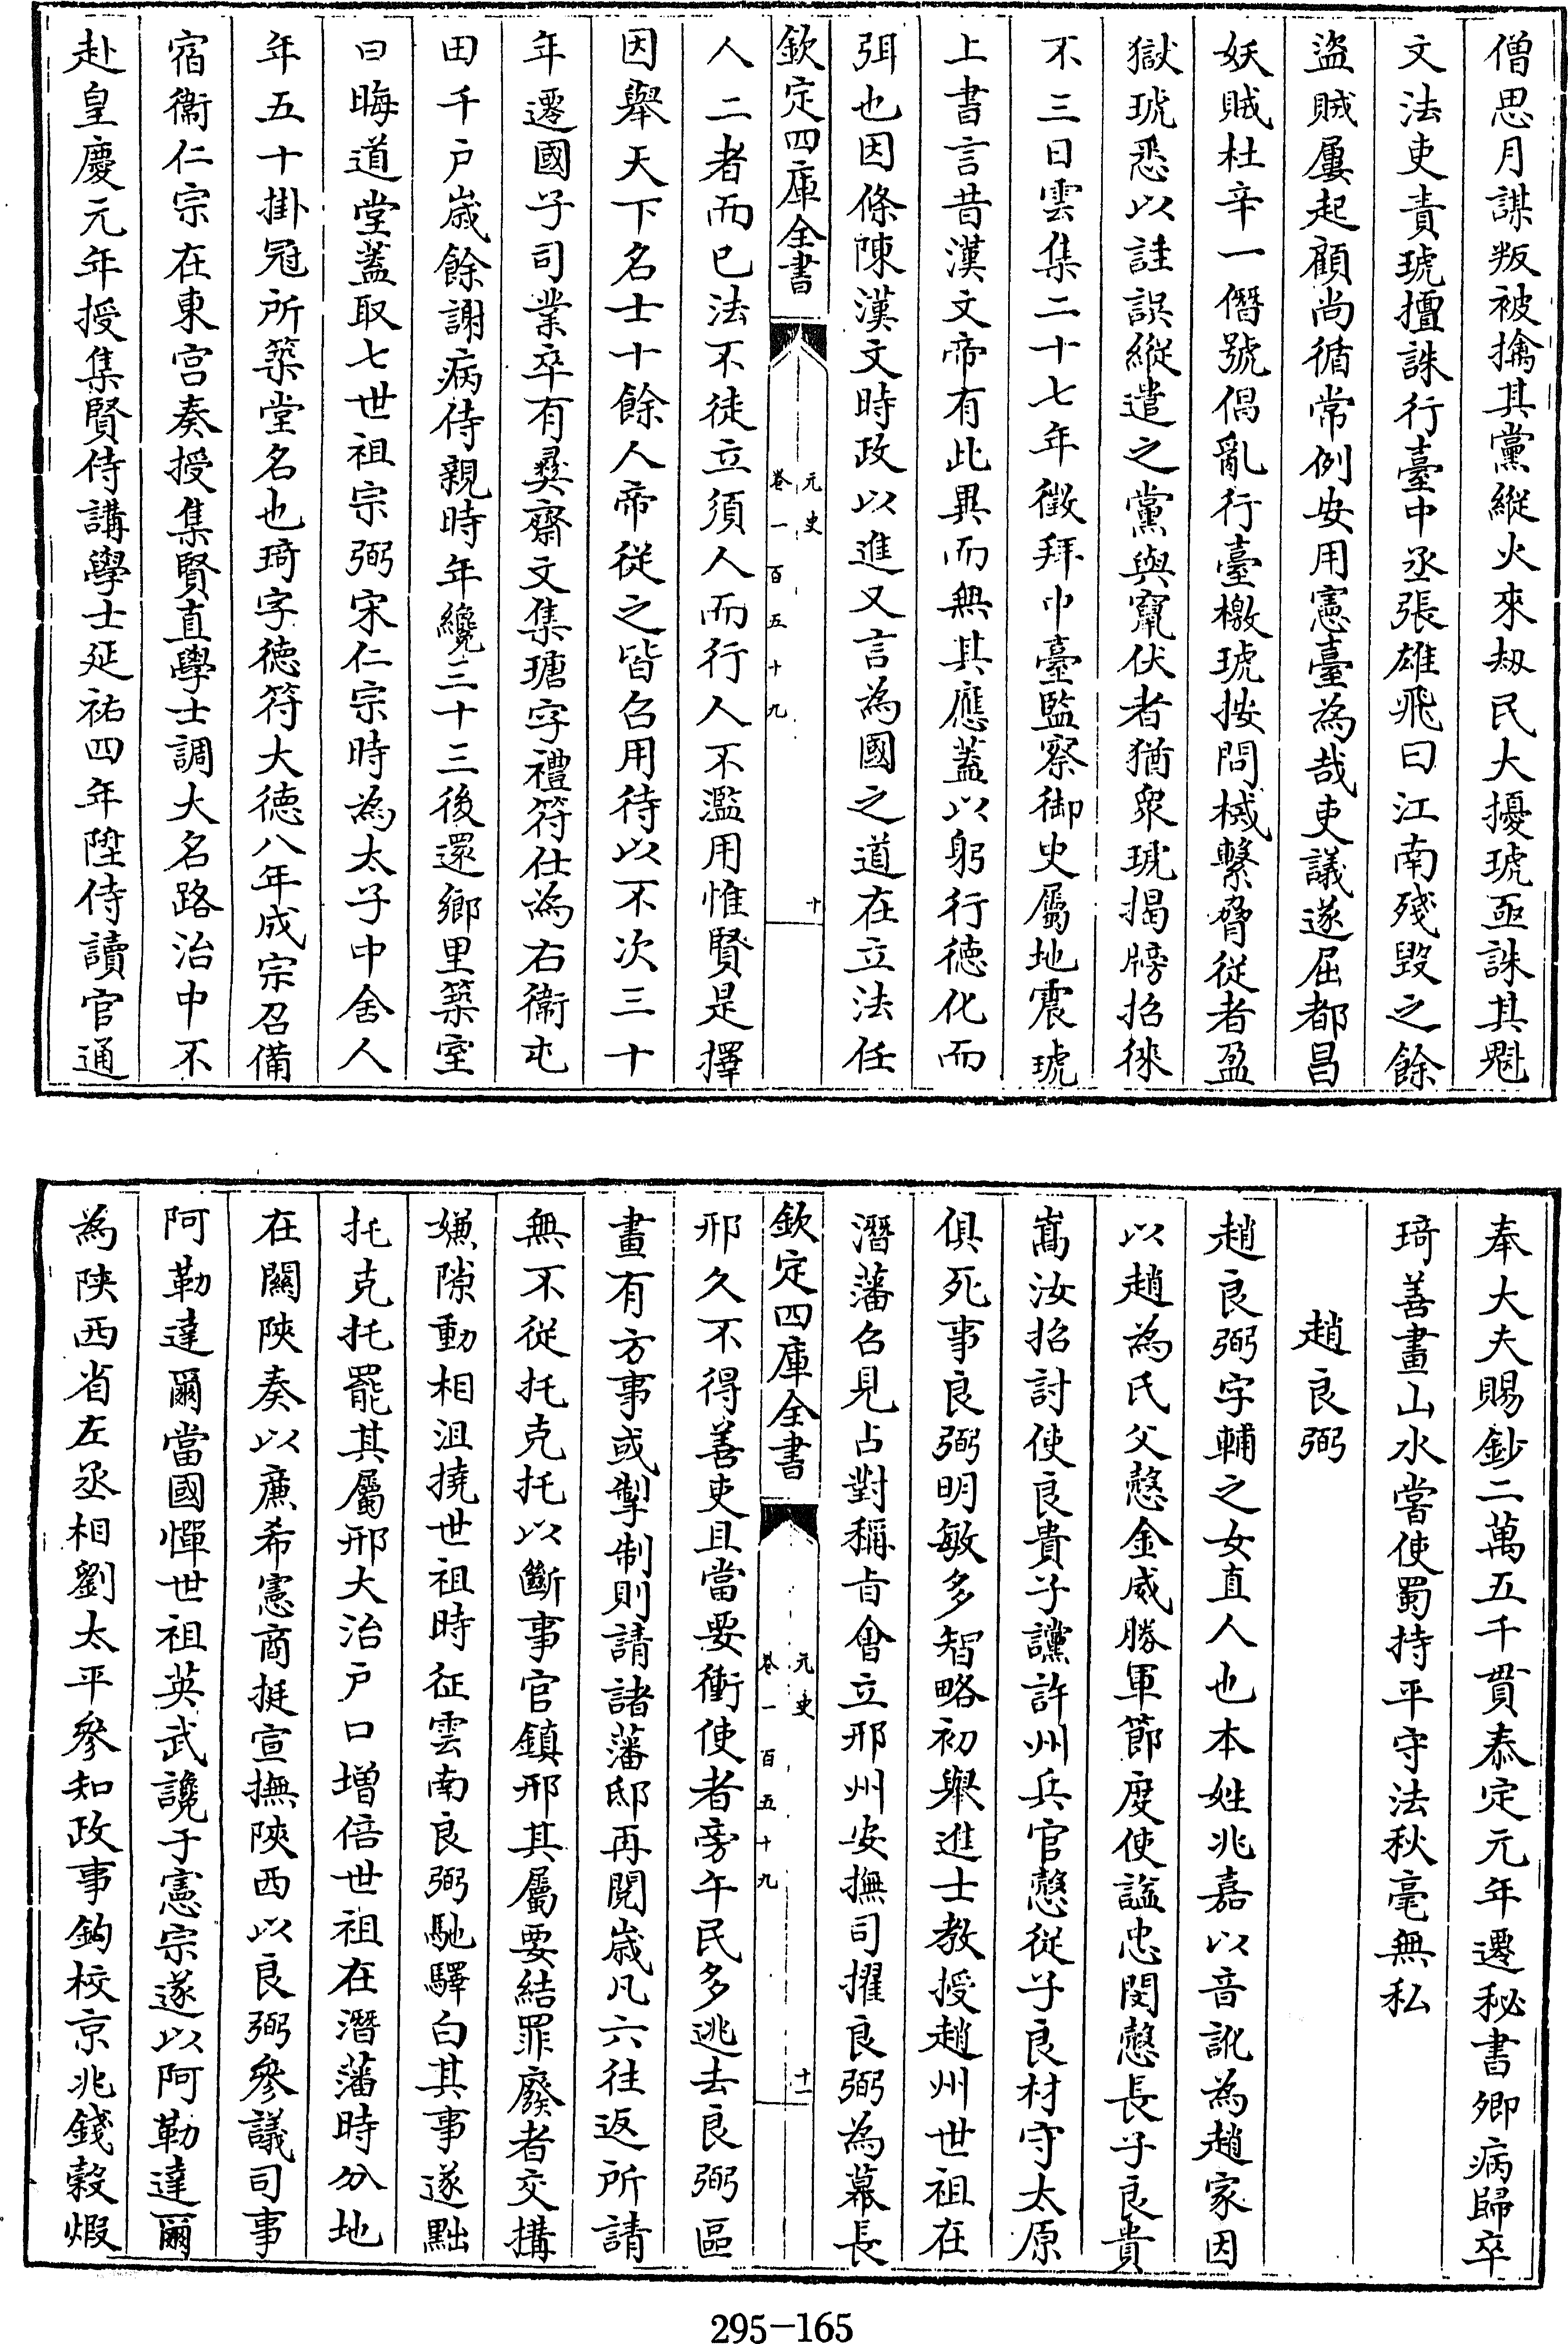 僧思月謀叛被擒其黨縱火來刼民大擾琥亟誅其魁
文法吏責琥擅誅行臺中丞張雄飛曰江南殘毀之餘
盜賊屢起顧尚循常例安用憲臺為哉吏議遂屈都昌
妖賊杜辛一僭號倡亂行臺檄琥按問械繫脅從者盈
獄琥悉以詿誤縱遣之黨與竄伏者猶衆琥揭牓招徠
不三日雲集二十七年徵拜中臺監察御史屬地震琥
上書言昔漢文帝有此異而無其應蓋以躬行德化而
弭也因條陳漢文時政以進又言為國之道在立法任
欽定四庫全書
元史
卷一百五十九
十
人二者而已法不徒立須人而行人不濫用惟賢是擇
因舉天下名士十餘人帝從之皆召用待以不次三十
年遷國子司業卒有彛齋文集瑭字禮符仕為右衞屯
田千戸歲餘謝病侍親時年纔三十三後還鄉里築室
曰晦道堂蓋取七世祖宗弼宋仁宗時為太子中舍人
年五十掛冠所築堂名也琦字德符大德八年成宗召備
宿衞仁宗在東宮奏授集賢直學士調大名路治中不
赴皇慶元年授集賢侍講學士延祐四年陞侍讀官通
奉大夫賜鈔二萬五千貫泰定元年遷秘書卿病歸卒
琦善畫山水嘗使蜀持平守法秋毫無私
趙良弼
趙良弼字輔之女直人也本姓兆嘉以音訛為趙家因
以趙為氏父慤金威勝軍節度使謚忠閔慤長子良貴
嵩汝招討使良貴子讜許州兵官慤從子良材守太原
俱死事良弼明敏多智略初舉進士教授趙州世祖在
潛藩召見占對稱旨會立邢州安撫司擢良弼為幕長
欽定四庫全書
元史
卷一百五十九
十一
邢久不得善吏且當要衝使者旁午民多逃去良弼區
畫有方事或掣制則請諸藩邸再閱歲凡六往返所請
無不從托克托以斷事官鎮邢其屬要結罪廢者交搆
嫌隙動相沮撓世祖時征雲南良弼馳驛白其事遂黜
托克托罷其屬邢大治戸口增倍世祖在潛藩時分地
在關陝奏以廉希憲商挺宣撫陝西以良弼參議司事
阿勒達爾當國憚世祖英武讒于憲宗遂以阿勒達爾
為陝西省左丞相劉太平參知政事鈎校京兆錢穀煆
295-165